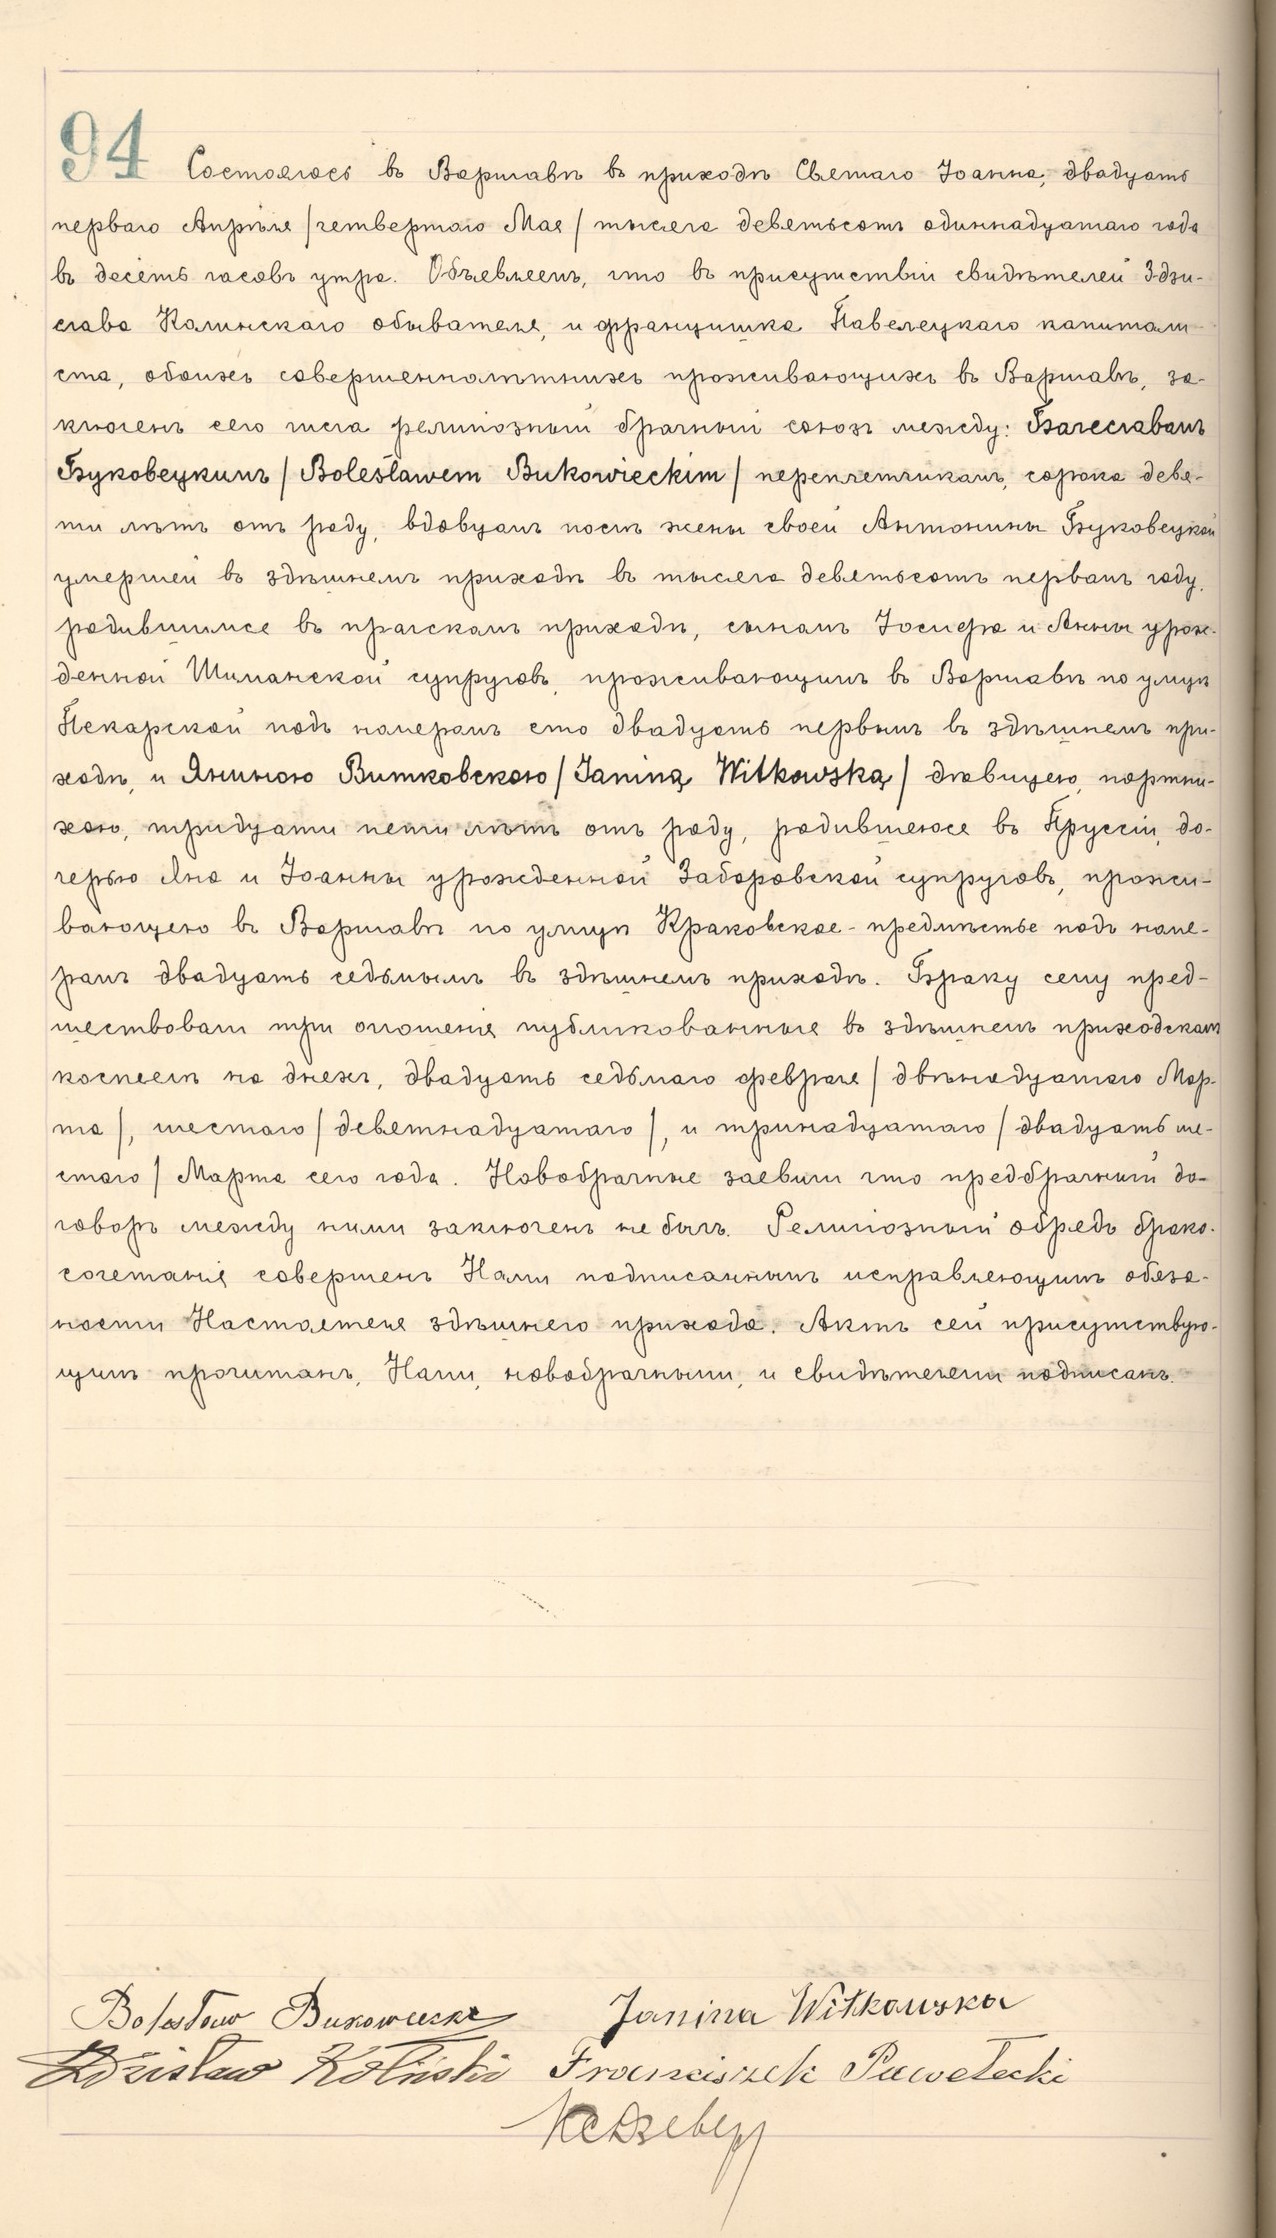 94 Состоялось въ Варшавѣ въ приходѣ Святаго Іоанна, двадцать
перваго Апрѣля /четвертаго Мая/ тысяча девятьсотъ одиннадцатаго года
въ десять часовъ утра. Объявляемъ, что въ присутствіи свидѣтелей Здзи-
слава Колинскаго обывателя, и Францишка Павелецкаго капитали-
ста, обоихъ совершеннолѣтнихъ проживающихъ въ Варшавѣ, за-
ключенъ сего числа религіозный брачный союзъ между: Болеславомъ
Буковецкимъ /Bolesławem Bukowieckim/ переплетчикомъ, сорока девя-
ти лѣтъ отъ роду, вдовцомъ послѣ жены своей Антонины Буковецкой
умершей въ здѣшнемъ приходѣ въ тысяча девятьсотъ первомъ году,
родившимся въ пражскомъ приходѣ, сыномъ Іосифа и Анны урож-
денной Шиманской супруговъ, проживающимъ въ Варшавѣ по улицѣ
Пекарской подъ номеромъ сто двадцать первымъ въ здѣшнемъ при-
ходѣ, и Яниною Витковскою /Janiną Witkowską/ дѣвицею, портни-
хою, тридцати пяти лѣтъ отъ роду, родившеюся въ Пруссіи, до-
черью Яна и Іоанны урожденной Заборовской супруговъ, прожи-
вающею въ Варшавѣ по улицѣ Краковское-предмѣстье подъ номе-
ромъ двадцать седьмымъ въ здѣшнемъ приходѣ. Браку сему пред-
шествовали три оглошенія публикованныя въ здѣшнемъ приходскомъ
костелѣ на дняхъ, двадцать седьмаго февраля /двѣнадцатаго Мар-
та/, шестаго /девятнадцатаго/, и тринадцатаго /двадцать ше-
стаго/ Марта сего года. Новобрачные заявили что предбрачный до-
говоръ между ними заключенъ не былъ. Религіозный обрядъ брако-
сочетанія совершенъ Нами подписаннымъ исправляющимъ обяза-
ности Настоятеля здѣшняго прихода. Актъ сей присутствую-
щимъ прочитанъ, Нами, новобрачными, и свидѣтелями подписанъ.
Bolesław Bukowiecki Janina Witkowska
Zdzisław Koliński Franciszek Pawełecki